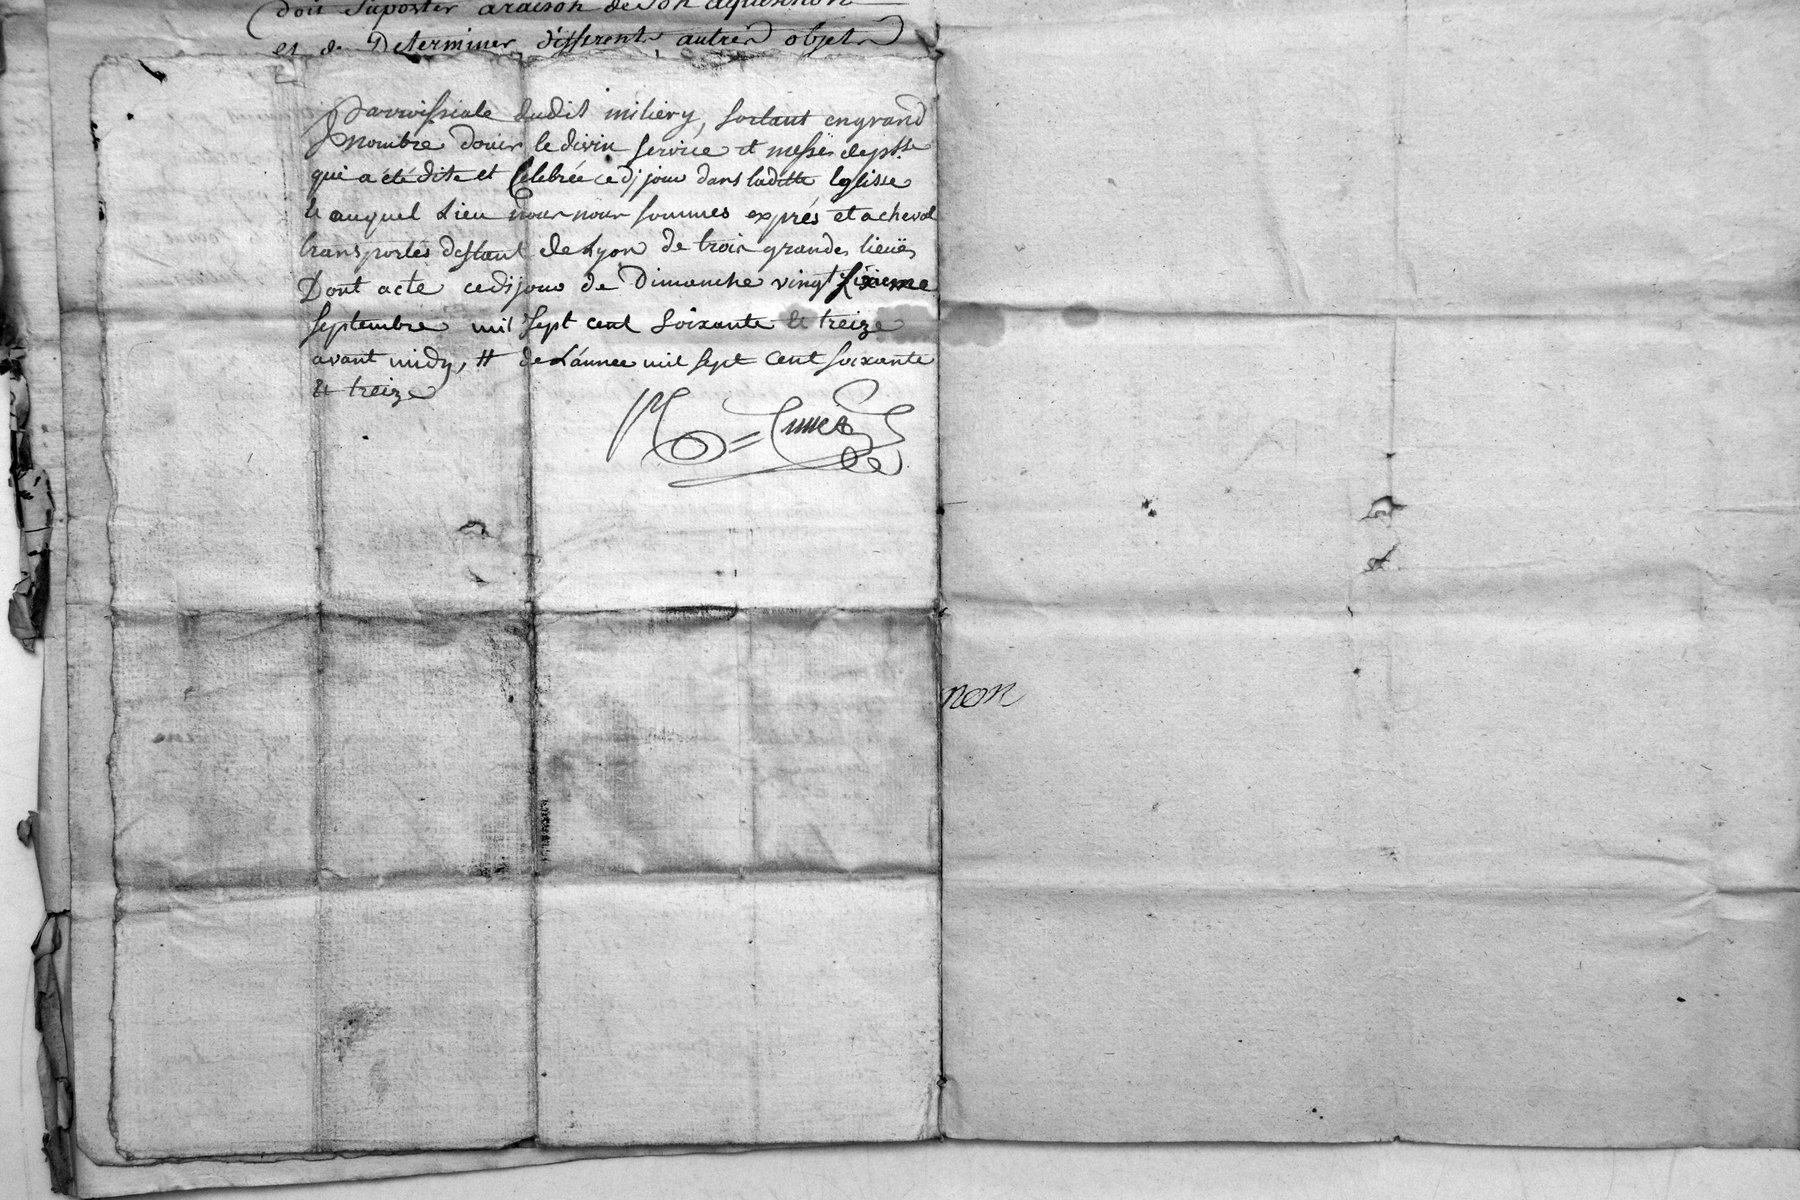 doit suporter araison de son aquisition
et de Determiner differents autres objets
parroissiale dudit miliery, sortant en grand
nombre douir le divin service et messe de psse
qui a été dite et Celebrée cedj jour dans laditte Eglisse
auquel Lieu nous nous sommes exprés et acheval
transportés distant de Lyon de trois grandes lieuës
Dont acte cedj jour de Dimanche vingt sixieme
septembre mil sept cent soixante et treize
avant midy, # de L'année mil sept cent soixante
et treize
non